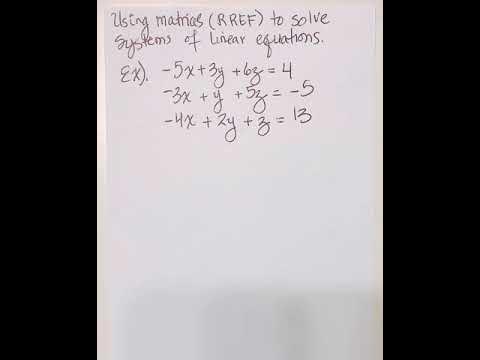 Using matrices (RREF) to solve
systems of linear equations.
Ex). -5x+3y +6z = 4
-3x + y + 5z = -5
-4x + 2y + z = 13